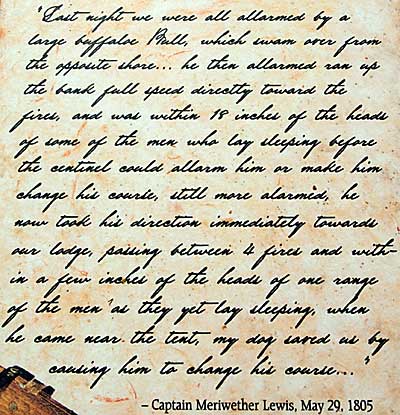 "Last night we were all allarmed by a
large buffaloe Bull, which swam over from
the opposite shore... he then allarmed ran up
the bank full speed directly toward the
fires, and was within 18 inches of the heads
of some of the men who lay sleeping before
the centinel could allarm him or make him
change his course, still more alarmed, he
now took his direction immediately towards
our lodge, passing between 4 fires and with-
in a few inches of the heads of one range
of the men as they yet lay sleeping, when
he came near the tent, my dog saved us by
causing him to change his course..."
– Captain Meriwether Lewis, May 29, 1805